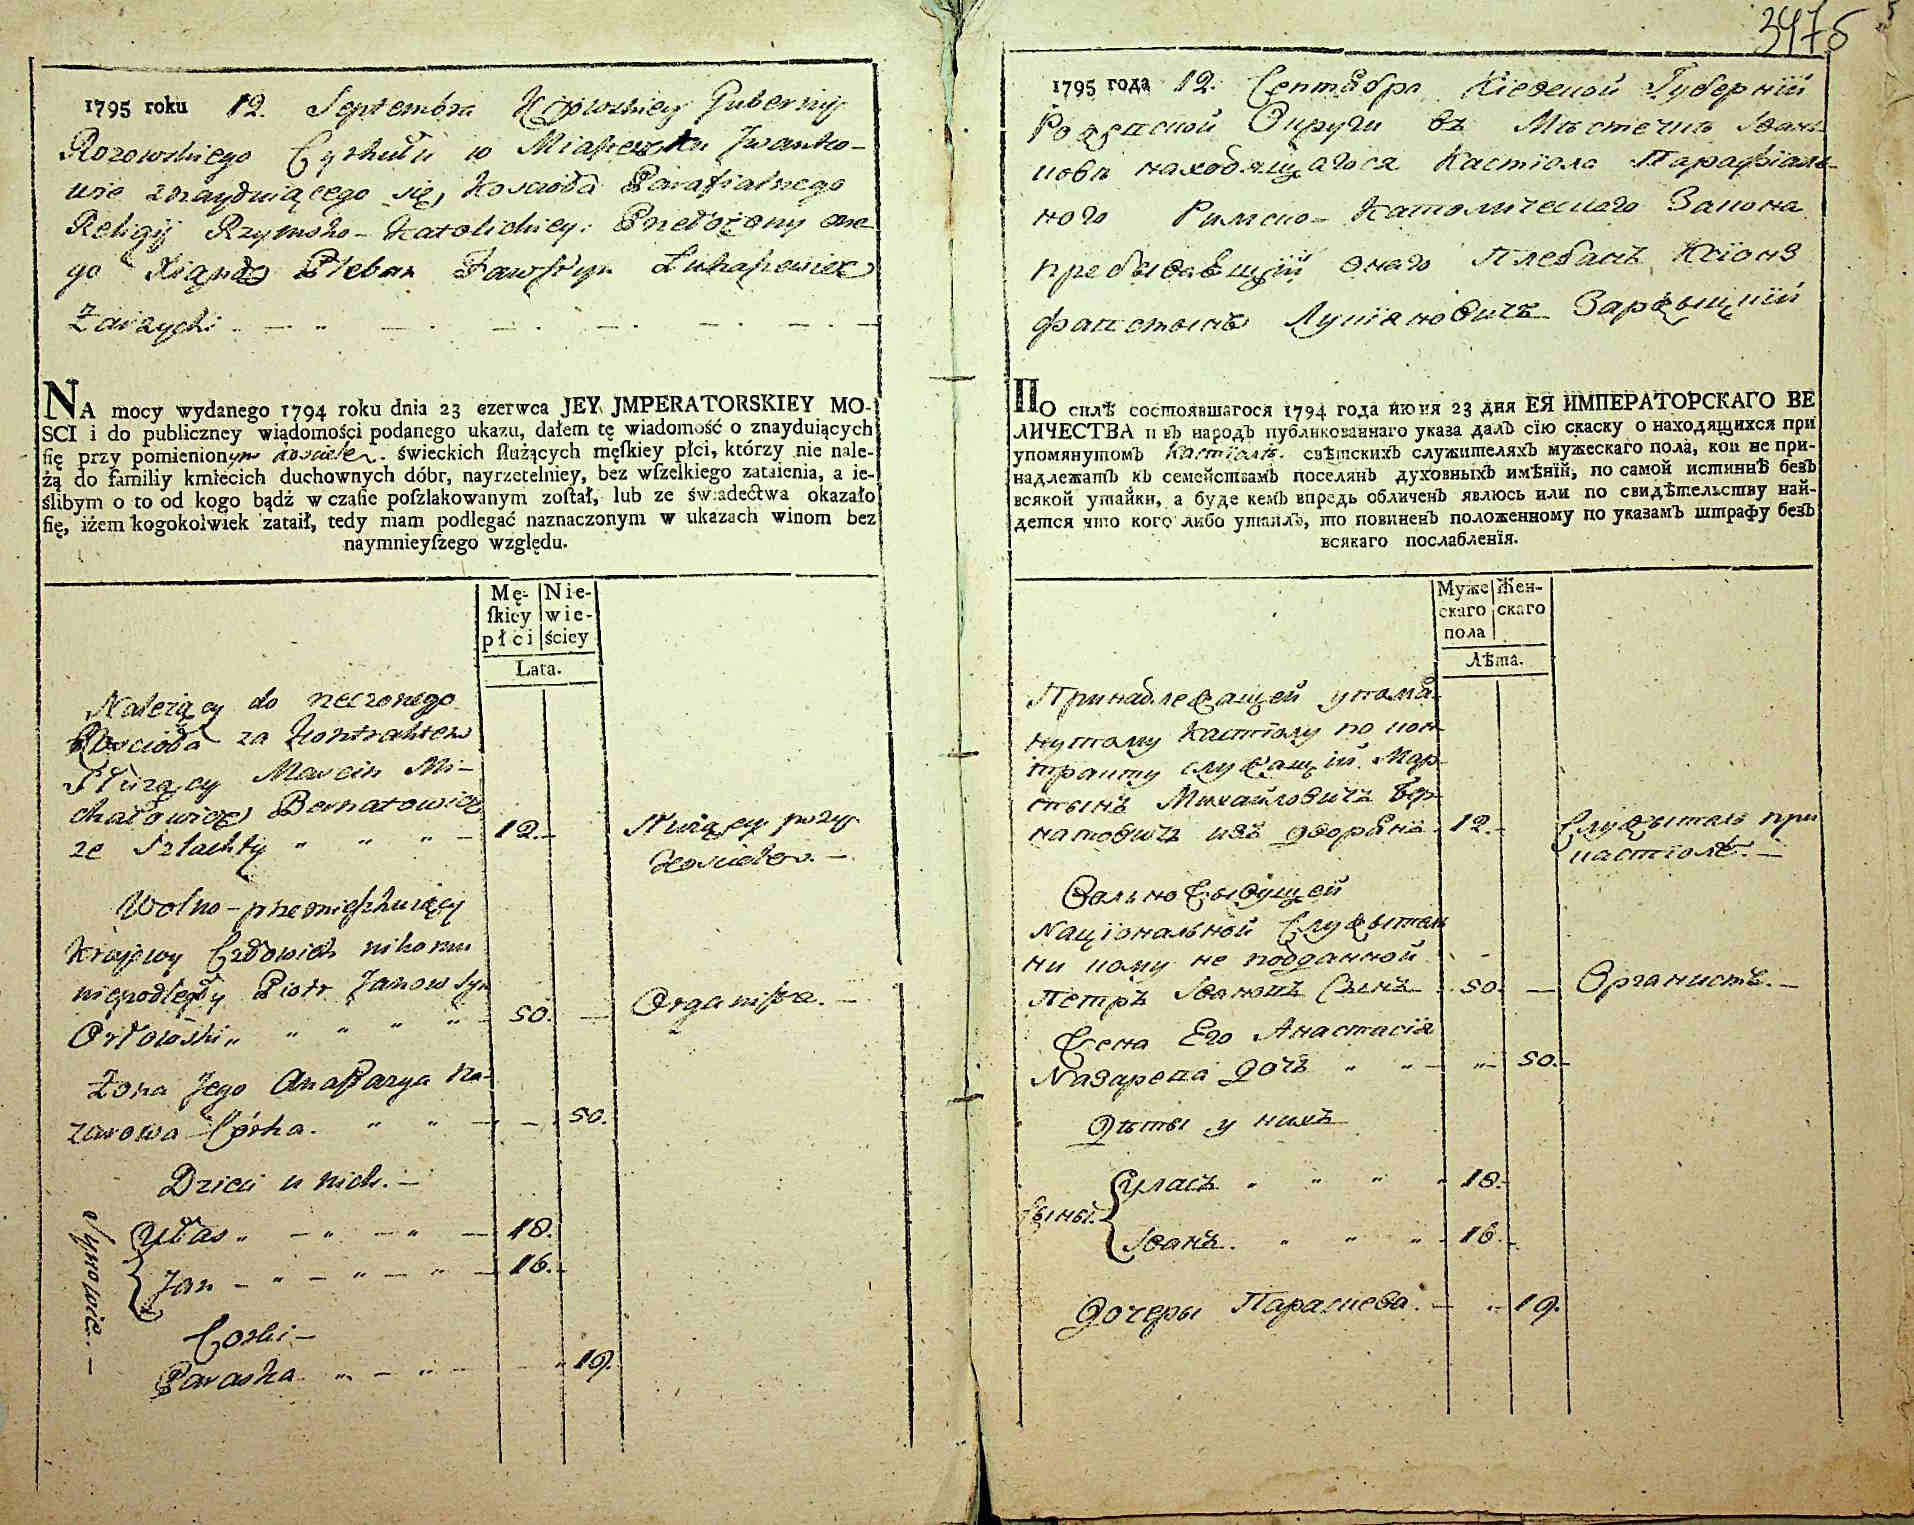 1795 roku 12. Septembra Kijowskiey Gubernij
Rozowskiego Cyrkułu w Miasteczku Jwanko-
wie znayduiącego się, Kościoła Parafialnego
Religij Rzymsko-Katolickiey: Przełożony one-
go Xiądz Pleban Fawstyn Łukaszewicz
Zarzycki
NA mocy wydanego 1794 roku dnia 23 czerwca JEY JMPERATORSKIEY MO-
SCI i do publiczney wiadomości podanego ukazu, dałem tę wiadomość o znayduiących
ſię przy pomienionym kościele. świeckich ſłużących męſkiey płci, którzy nie nale-
żą do familiy kmiecich duchownych dóbr, nayrzetelniey, bez wſzelkiego zataienia, a ie-
ślibym o to od kogo bądź w czaſie poſzlakowanym zoſtał, lub ze świadectwa okazało
ſię, iżem kogokolwiek zataił, tedy mam podlegać naznaczonym w ukazach winom bez
naymnieyſzego względu.
Mę- Nie-
ſkiey wie-
płci ściey
Lata.
Należący do rzeczonego
Kościoła za Kontraktem
Służący Marcin Mi-
chałowicz Bernatowicz
ze Szlachty " " " - 12.- Służący przy
Kościele. -
Wolno-przemieszkuiący
Kraiowy Człowiek nikomu
niepodległy Piotr Janow Syn
Orłowski " " " " - 50. - Organista. -
Żona Jego Anastazya Na-
zarowa Córka. " " - - 50.
Dzieci u nich. -
Synowie. -
Ułas " - " - " - 18.
Jan - " - " - " - 16.-
Corki -
Paraska " - " - - " 19.
3476
1795 года 12. Сентября Кіевской Губерніи
Рожевской Округи въ Мѣстечкѣ Іван-
ковѣ находящагося Кастіола Парафіаль-
ного Римско-Католического Закона
пребывающій онаго Плебанъ Ксіонз
Фапстынъ Лукіановичъ Заржыцкій
ПО силѣ состоявшагося 1794 года июня 23 дня ЕЯ ИМПЕРАТОРСКАГО ВЕ
ЛИЧЕСТВА и въ народъ публикованнаго указа далъ сію скаску о находящихся при
упомянутомъ Кастіолѣ. свѣтскихъ служителяхъ мужескаго пола, кои не при-
надлежатъ къ семействамъ поселянъ духовныхъ имѣній, по самой истиннѣ безъ
всякой утайки, а буде кемъ впредь обличенъ явлюсь или по свидѣтельству най-
дется что кого либо утаилъ, то повиненъ положенному по указамъ штрафу безъ
всякаго послабленія.
Муже Жен-
скаго скаго
пола
Лѣта.
Принадлежащей упомя-
нутому Кастіолу по кон-
тракту служащій Мар-
тынъ Михайловичъ Бер-
натовичъ изъ дворянъ. 12.- Служытель при
кастіолѣ. -
Вольно Сывущей
Національной Служытель
ни кому не подданной
Петръ Івановъ Сынъ . 50. - Органистъ. -
Жена Его Анастасія
Назарева дочъ " " - "- 50.-
Дѣты у нихъ
Сыны.
Уласъ " " " " 18.-
Іванъ. " " " - 16.-
Дочеры Параскева. - " 19.